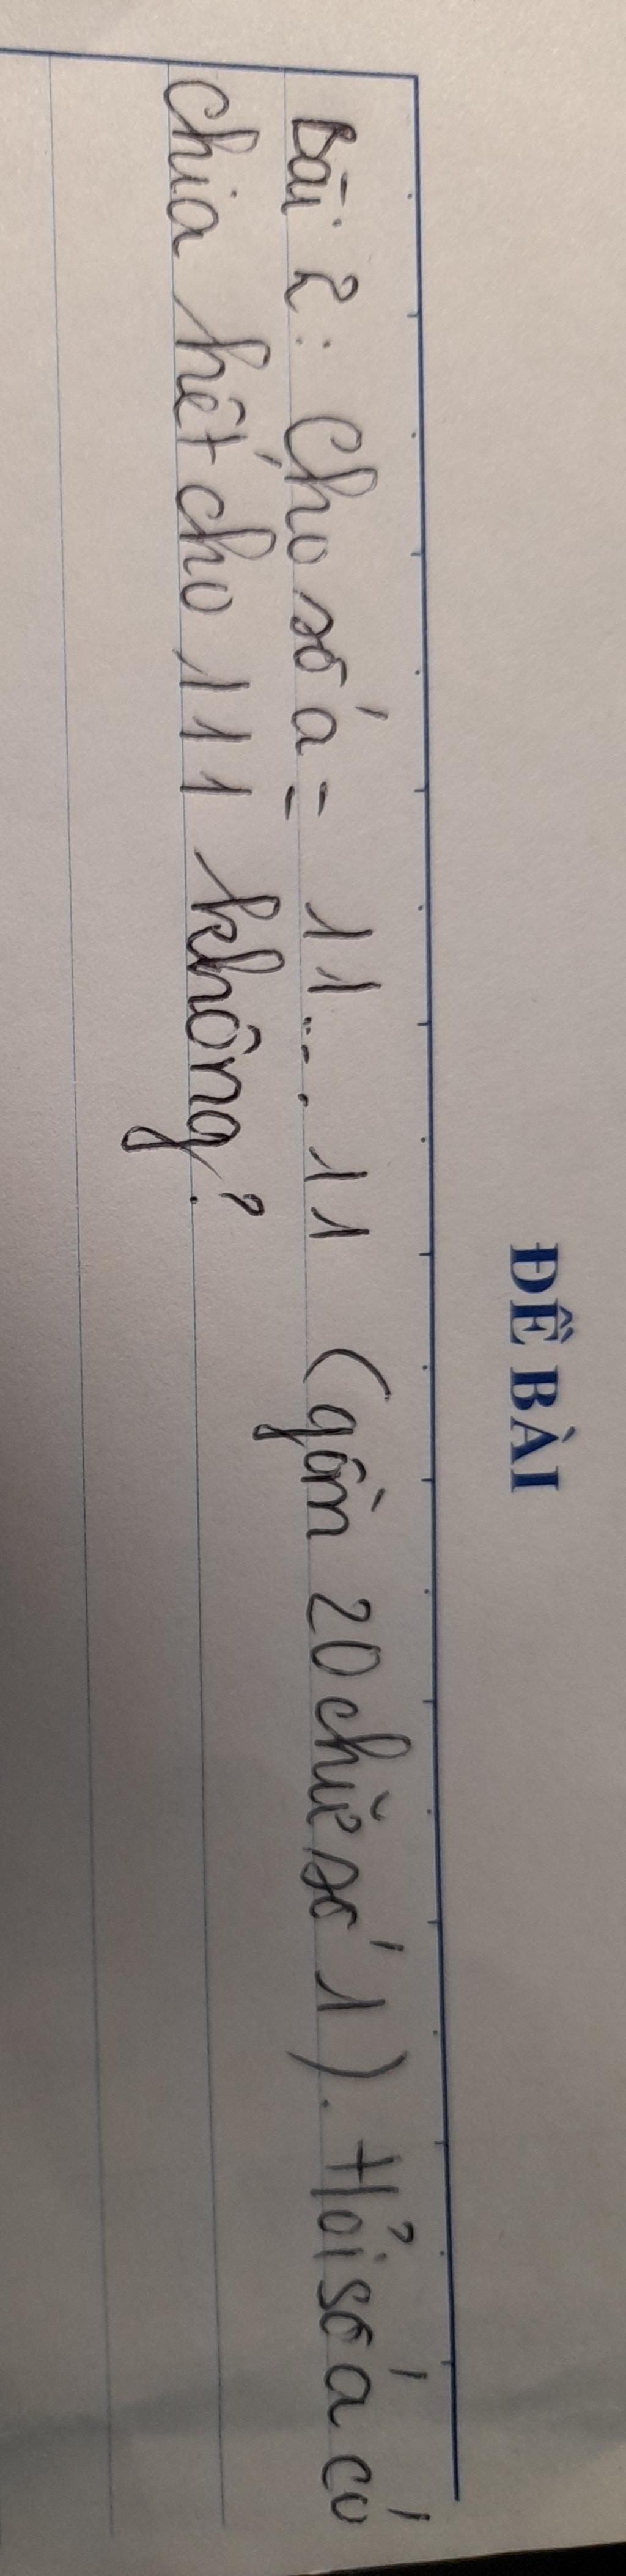 ĐỀ BÀI
Bài 2: Cho số a = 11...11 (gồm 20 chữ số 1). Hỏi số a có
chia hết cho 111 không?